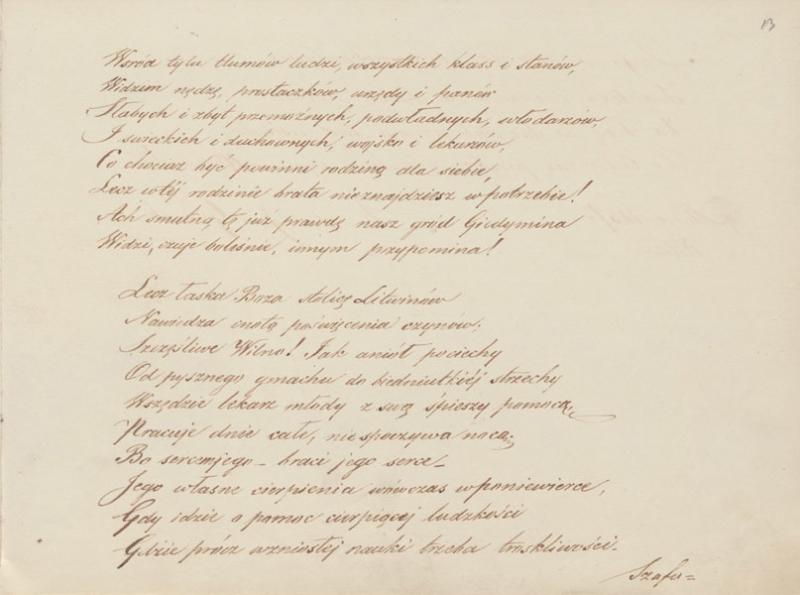 13
Wśród tylu tłumów ludzi, wszystkich klass i stanów,
Widzim nędzę, prostaczków, urzędy i panów
Słabych i zbyt przemożnych, podwładnych, włodarzów,
I świeckich i duchownych, wojsko i lekarzów,
Co chociaż być powinni rodziną dla siebie,
Lecz w téj rodzinie brata nieznajdziesz w potrzebie!
Ach smutną tę już prawdę nasz gród Giedymina
Widzi, czuje boleśnie, innym przypomina!
Lecz łaska Boża stolicę Litwinów
Nawiedza cnotą poświęcenia czynów,
Szczęśliwe Wilno! Jak anioł pociechy
Od pysznego gmachu do biedniutkiéj strzechy
Wszędzie lekarz młody z swą śpieszy pomocą,
Pracuje dnie całe, nie spoczywa nocą,
Bo sercem jego – braci jego serce –
Jego własne cierpienia wówczas w poniewierce,
Gdy idzie o pomoc cierpiącej ludzkości
Gdzie prócz wzniosłej nauki trzeba troskliwości –
Szafu=